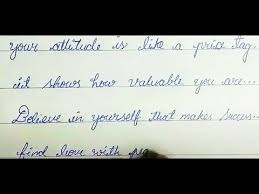 your attitude is like a price tag.
it shows how valuable you are...
Believe in yourself that makes
find how with